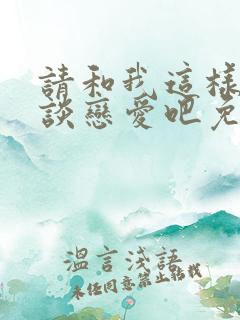 請和我這樣
談戀愛吧免
溫言淺語
未經同意禁止轉載